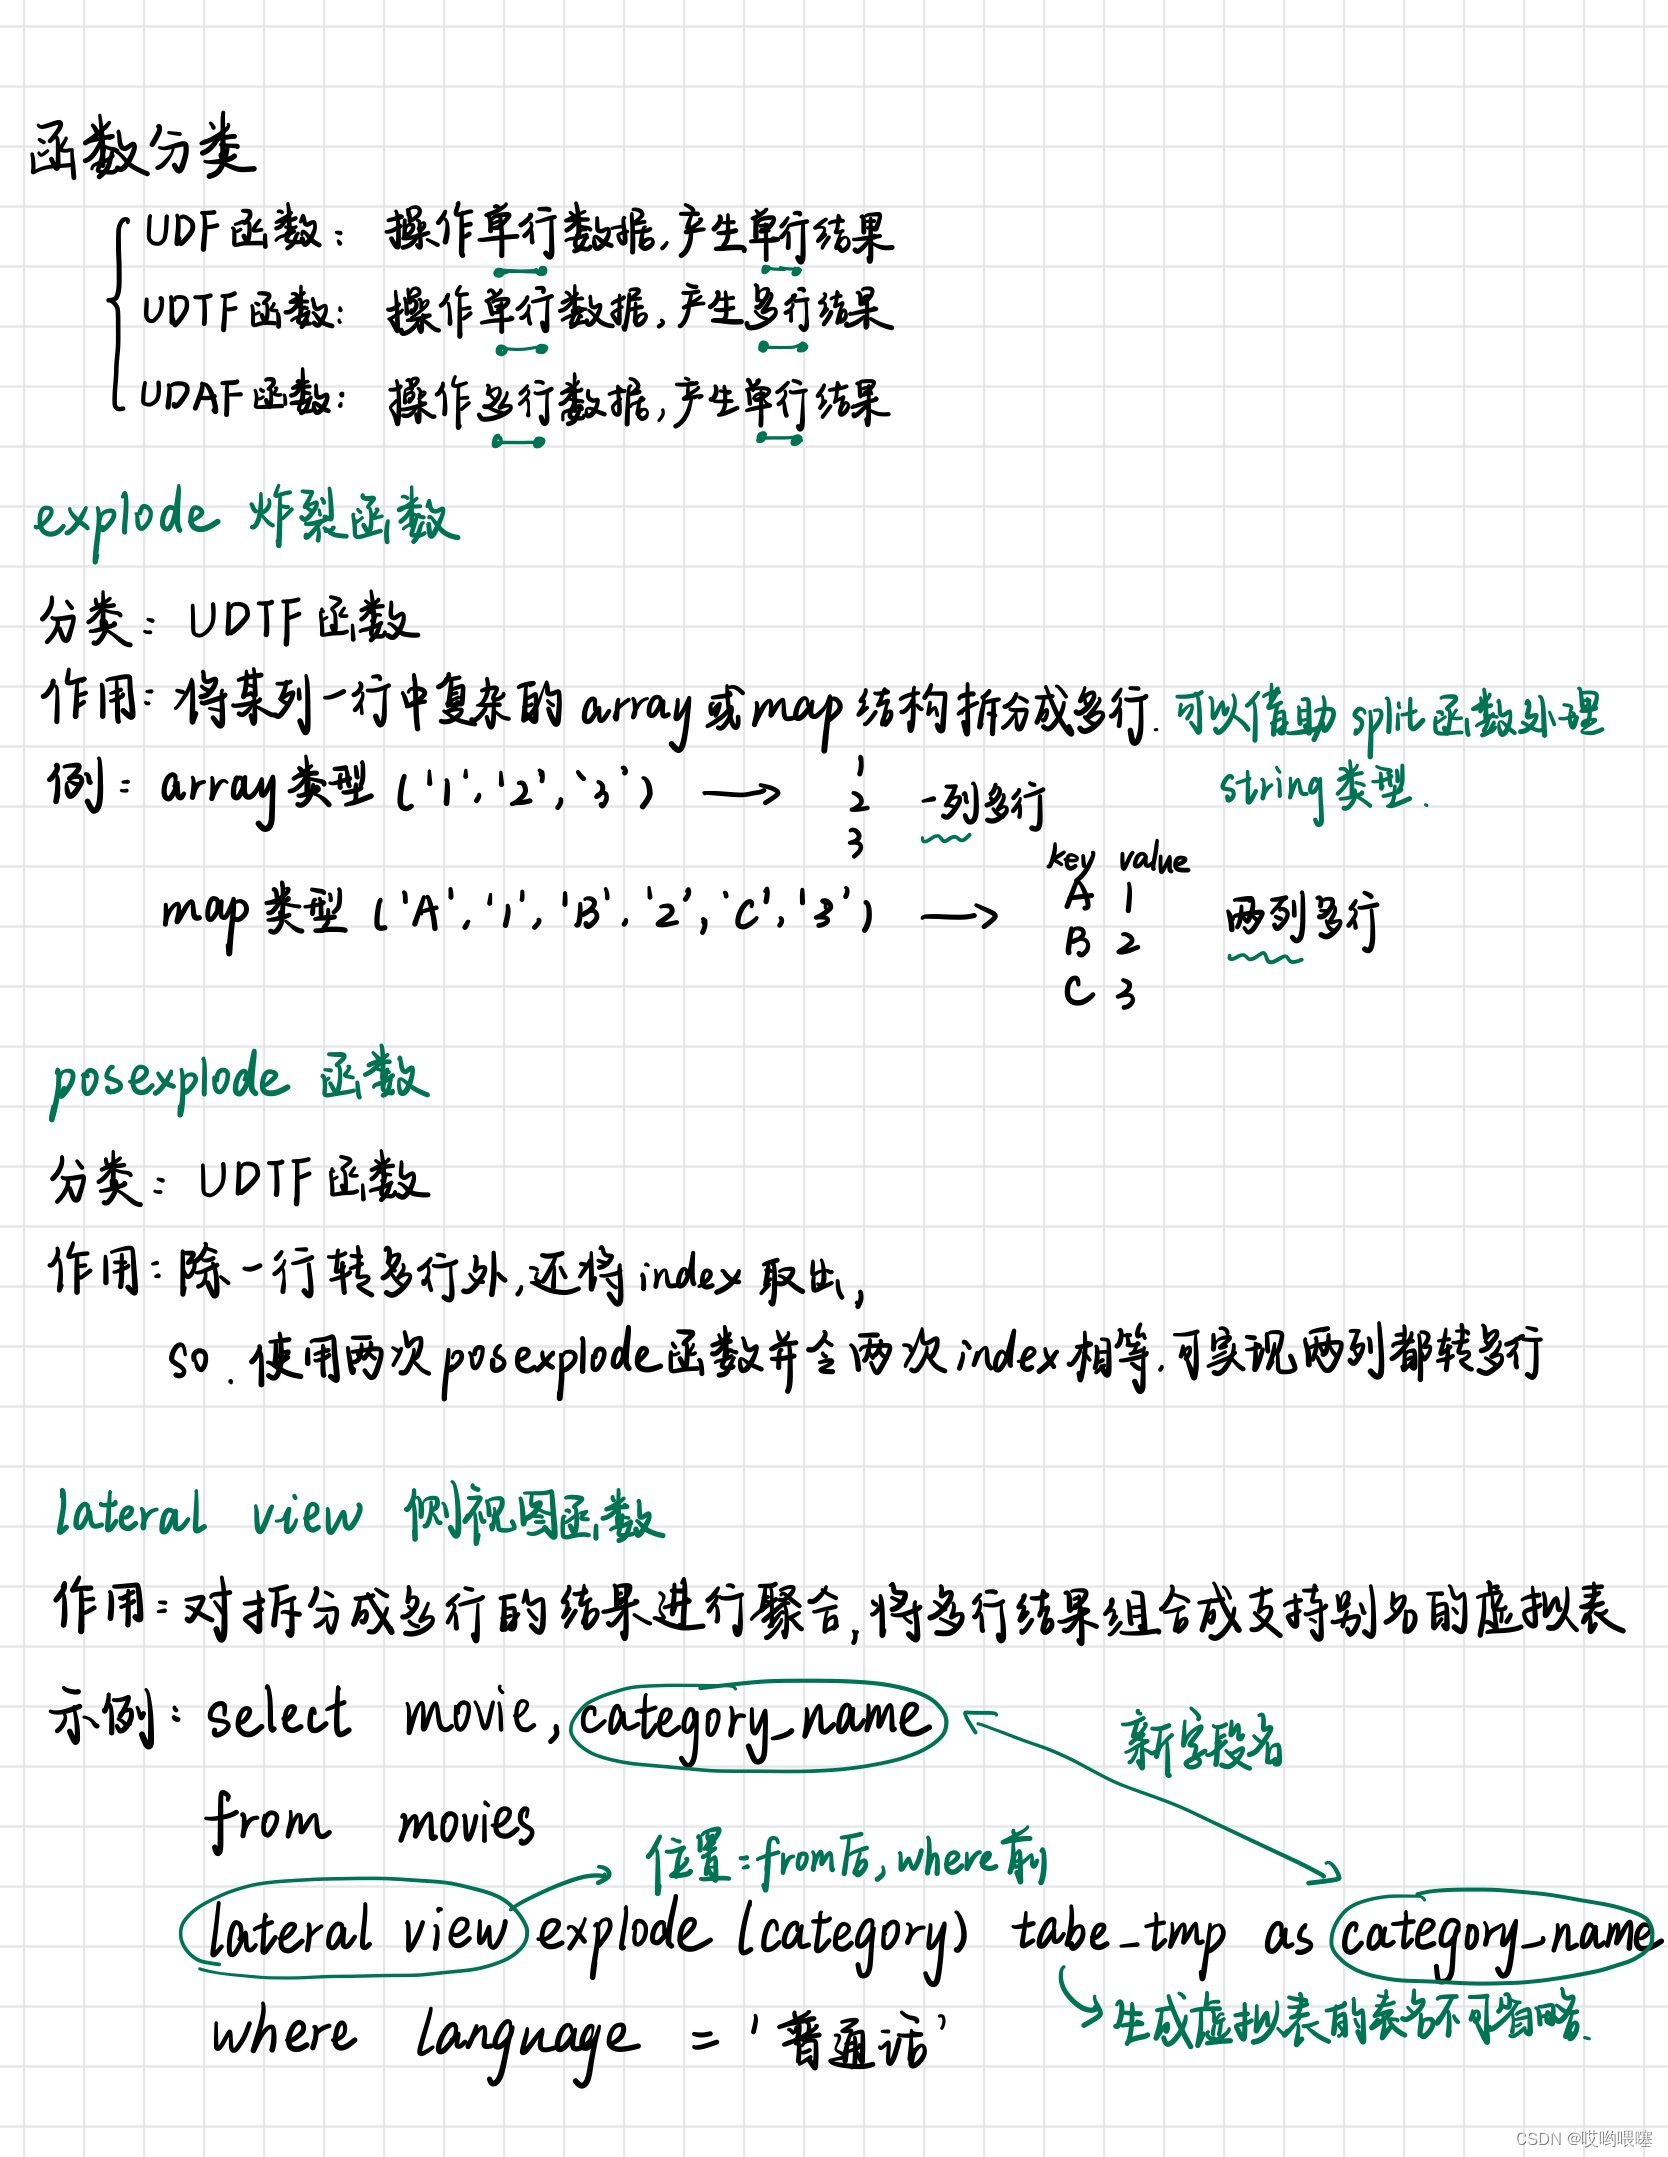 函数分类
UDF函数： 操作单行数据,产生单行结果
UDTF函数： 操作单行数据,产生多行结果
UDAF函数： 操作多行数据,产生单行结果
explode 炸裂函数
分类：UDTF函数
作用：将某列一行中复杂的array或map结构拆分成多行. 可以借助split函数处理
string类型.
例：array类型 ('1','2','3') → 1 2 3 一列多行
key value
map类型 ('A','1','B','2','C','3') → A 1 两列多行
B 2
C 3
posexplode 函数
分类：UDTF函数
作用：除一行转多行外,还将index取出,
so.使用两次posexplode函数并令两次index相等.可实现两列都转多行
lateral view 侧视图函数
作用：对拆分成多行的结果进行聚合,将多行结果组合成支持别名的虚拟表
示例：select movie, category_name
新字段名
from movies
位置：from后,where前
lateral view explode (category) tabe_tmp as category_name
生成虚拟表的表名不可省略.
where language = '普通话'
CSDN @哎哟喂噻